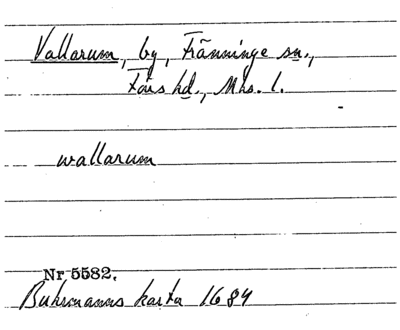 Vallarum, by, Fränninge sn.,
Färs hd., Mhs. l.
wallarum
Nr 5582.
Buhrmanns karta 1684